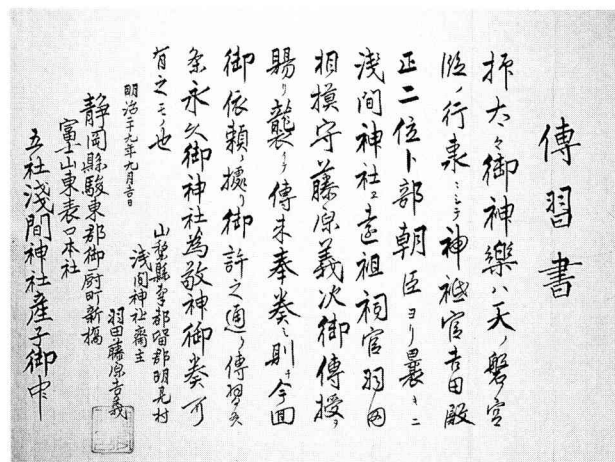 傳習書
抑太々御神樂ハ天ノ磐宮
ノ行衰ミシテ神祇官吉田殿
正二位卜部朝臣ヨリ曩キニ
浅間神社ヱ遠祖祠官羽田
相摸守藤原義次御傳授ヲ
賜リ襲リテ傳来奉奏ミ則チ今回
御依頼ノ據リ御許之通リ傳習ス
条永久御神社為敬神御奏可
有之モノ也
明治二十九年九月吉日
山梨縣南都留郡明見村
浅間神社齋主
羽田藤原吉義
静岡縣駿東郡御厨町新橋
富士山東表口本社
五社浅間神社産子御中